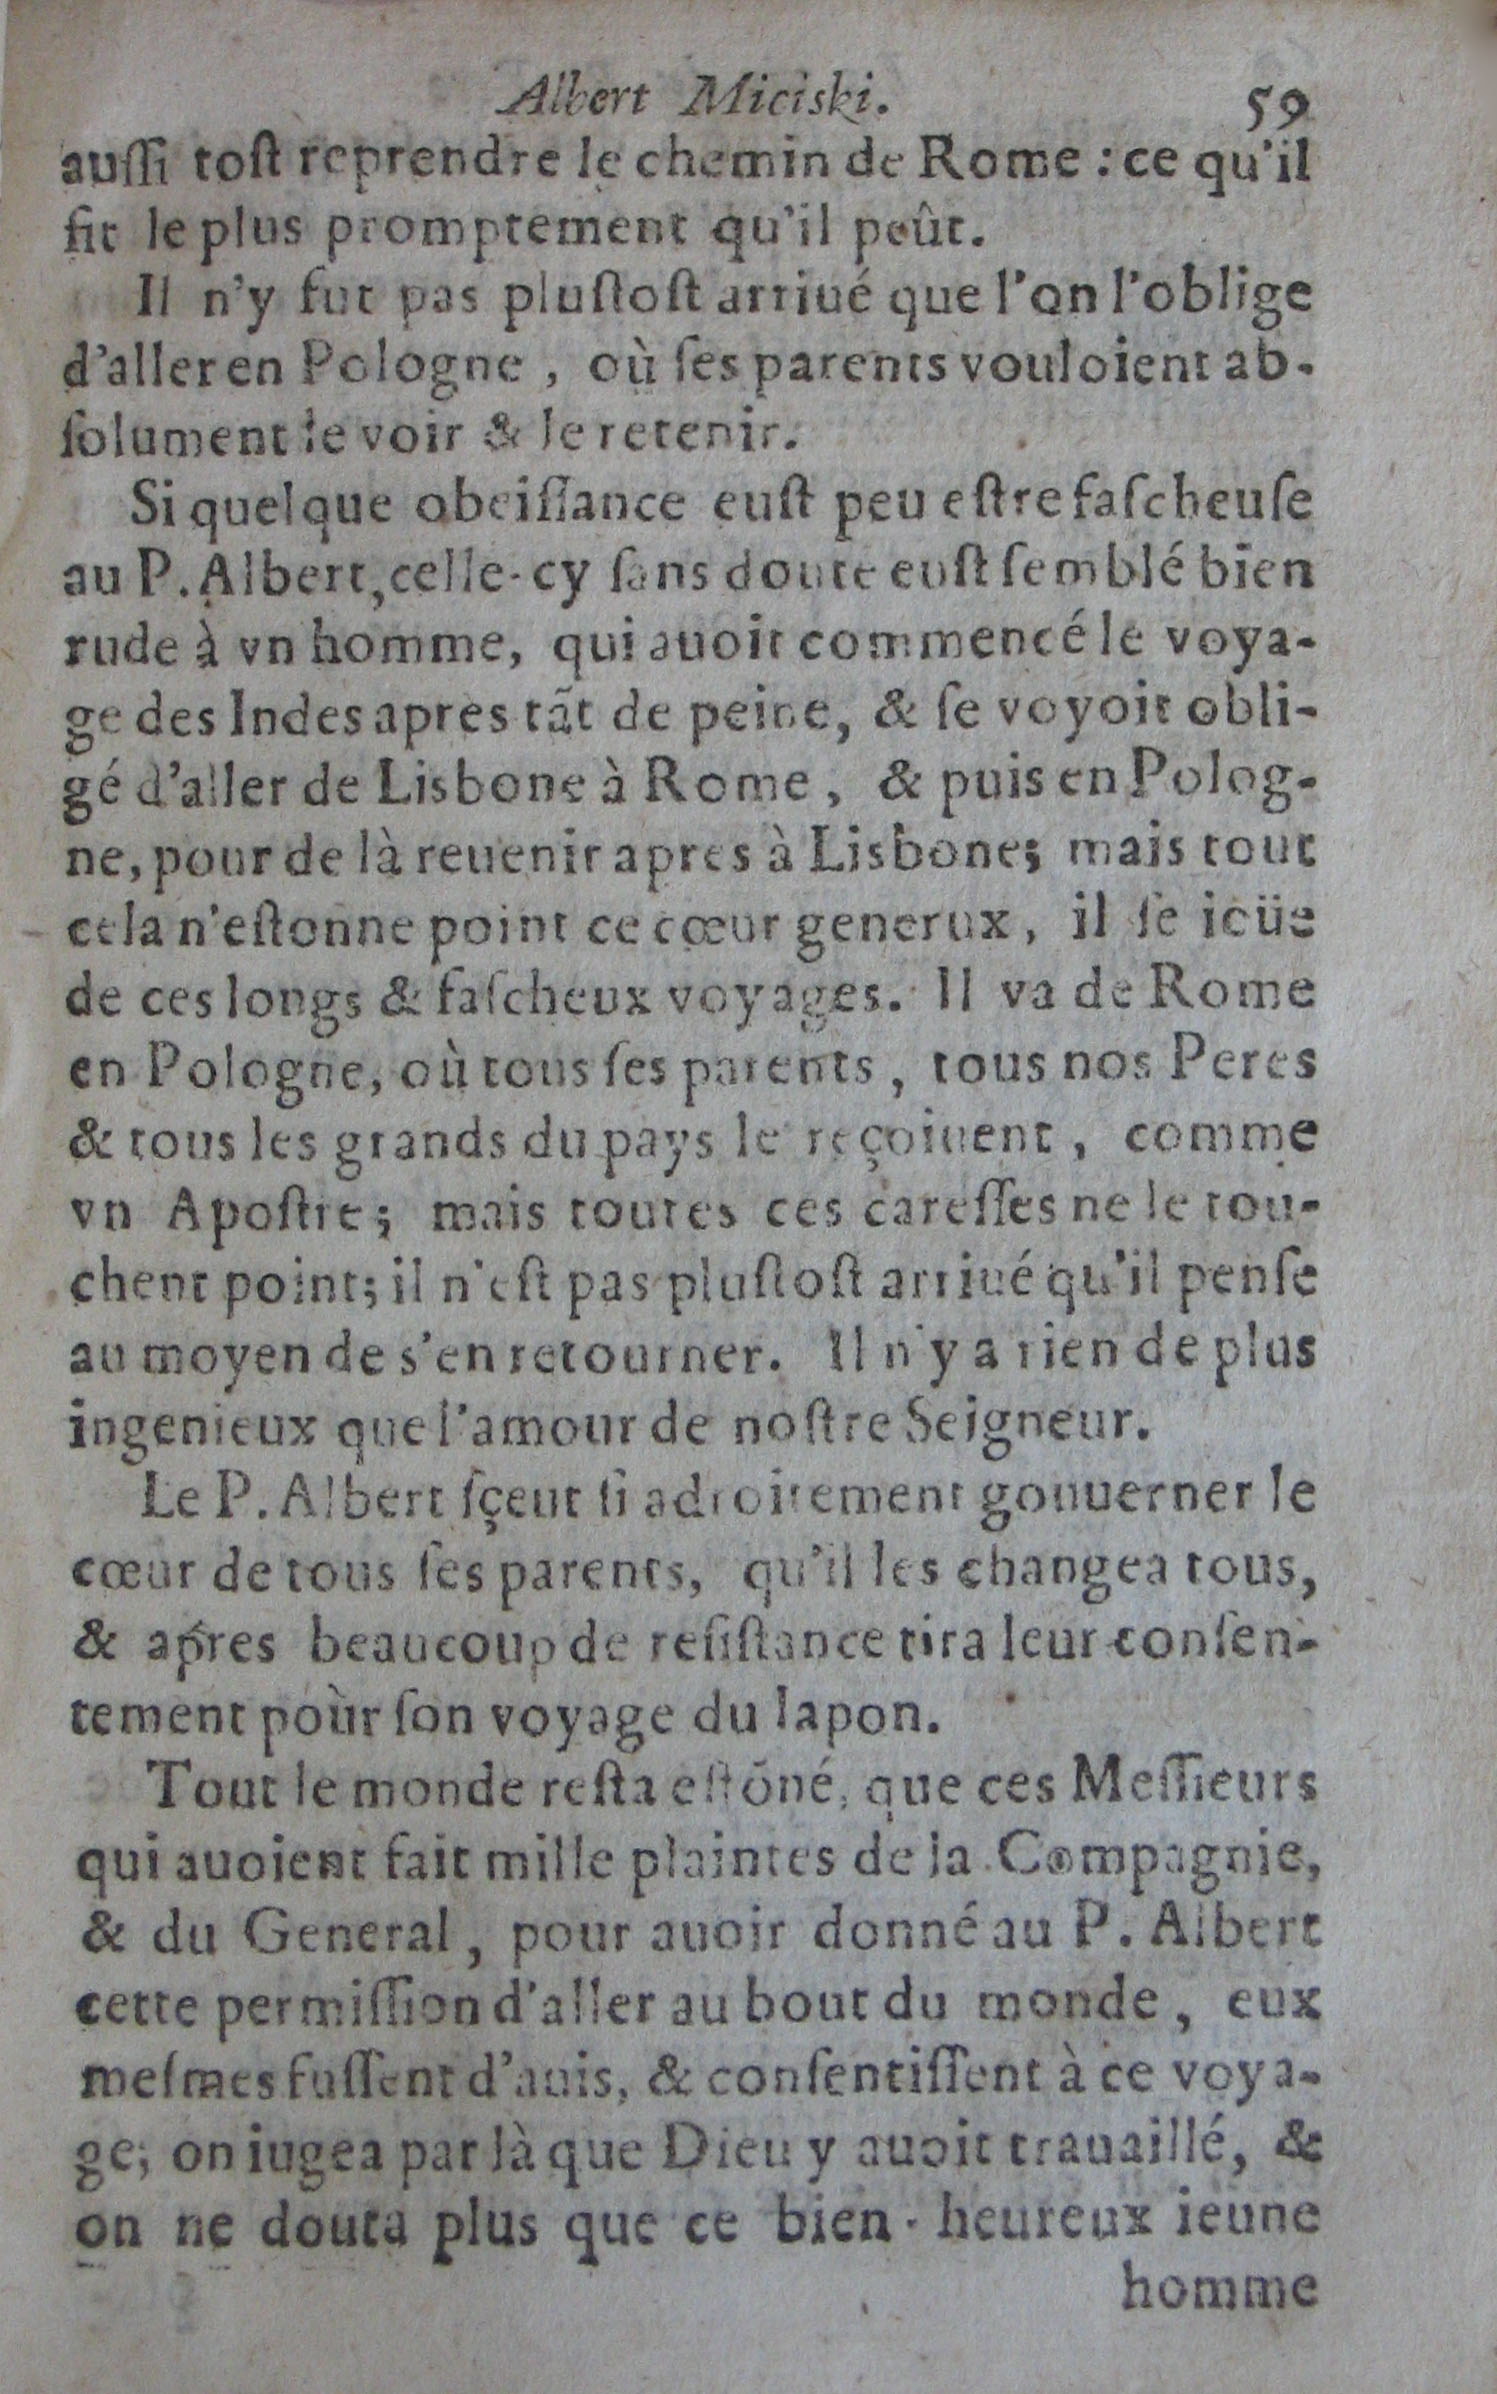 Albert Miciski. 59
auſſi toſt reprendre le chemin de Rome : ce qu'il
fit le plus promptement qu'il peût.
Il n'y fut pas pluſtoſt arriué que l'on l'oblige
d'aller en Pologne, où ſes parents vouloient ab-
ſolument le voir & le retenir.
Si quelque obeiſſance euſt peu eſtre faſcheuſe
au P. Albert, celle-cy ſans doute euſt ſemblé bien
rude à vn homme, qui auoit commencé le voya-
ge des Indes apres tãt de peine, & ſe voyoit obli-
gé d'aller de Lisbone à Rome, & puis en Polog-
ne, pour de là reuenir apres à Lisbone; mais tout
cela n'eſtonne point ce cœur generux, il ſe ioüe
de ces longs & faſcheux voyages. Il va de Rome
en Pologne, où tous ſes parents, tous nos Peres
& tous les grands du pays le reçoiuent, comme
vn Apoſtre; mais toutes ces careſſes ne le tou-
chent point; il n'eſt pas pluſtoſt arriué qu'il penſe
au moyen de s'en retourner. Il n'y a rien de plus
ingenieux que l'amour de noſtre Seigneur.
Le P. Albert ſçeut ſi adroitement gouuerner le
cœur de tous ſes parents, qu'il les changea tous,
& apres beaucoup de reſiſtance tira leur conſen-
tement pour ſon voyage du Iapon.
Tout le monde reſta eſtõné, que ces Meſſieurs
qui auoient fait mille plaintes de la Compagnie,
& du General, pour auoir donné au P. Albert
cette permiſſion d'aller au bout du monde, eux
meſmes fuſſent d'auis, & conſentiſſent à ce voya-
ge; on iugea par là que Dieu y auoit trauaillé, &
on ne douta plus que ce bien-heureux ieune
homme